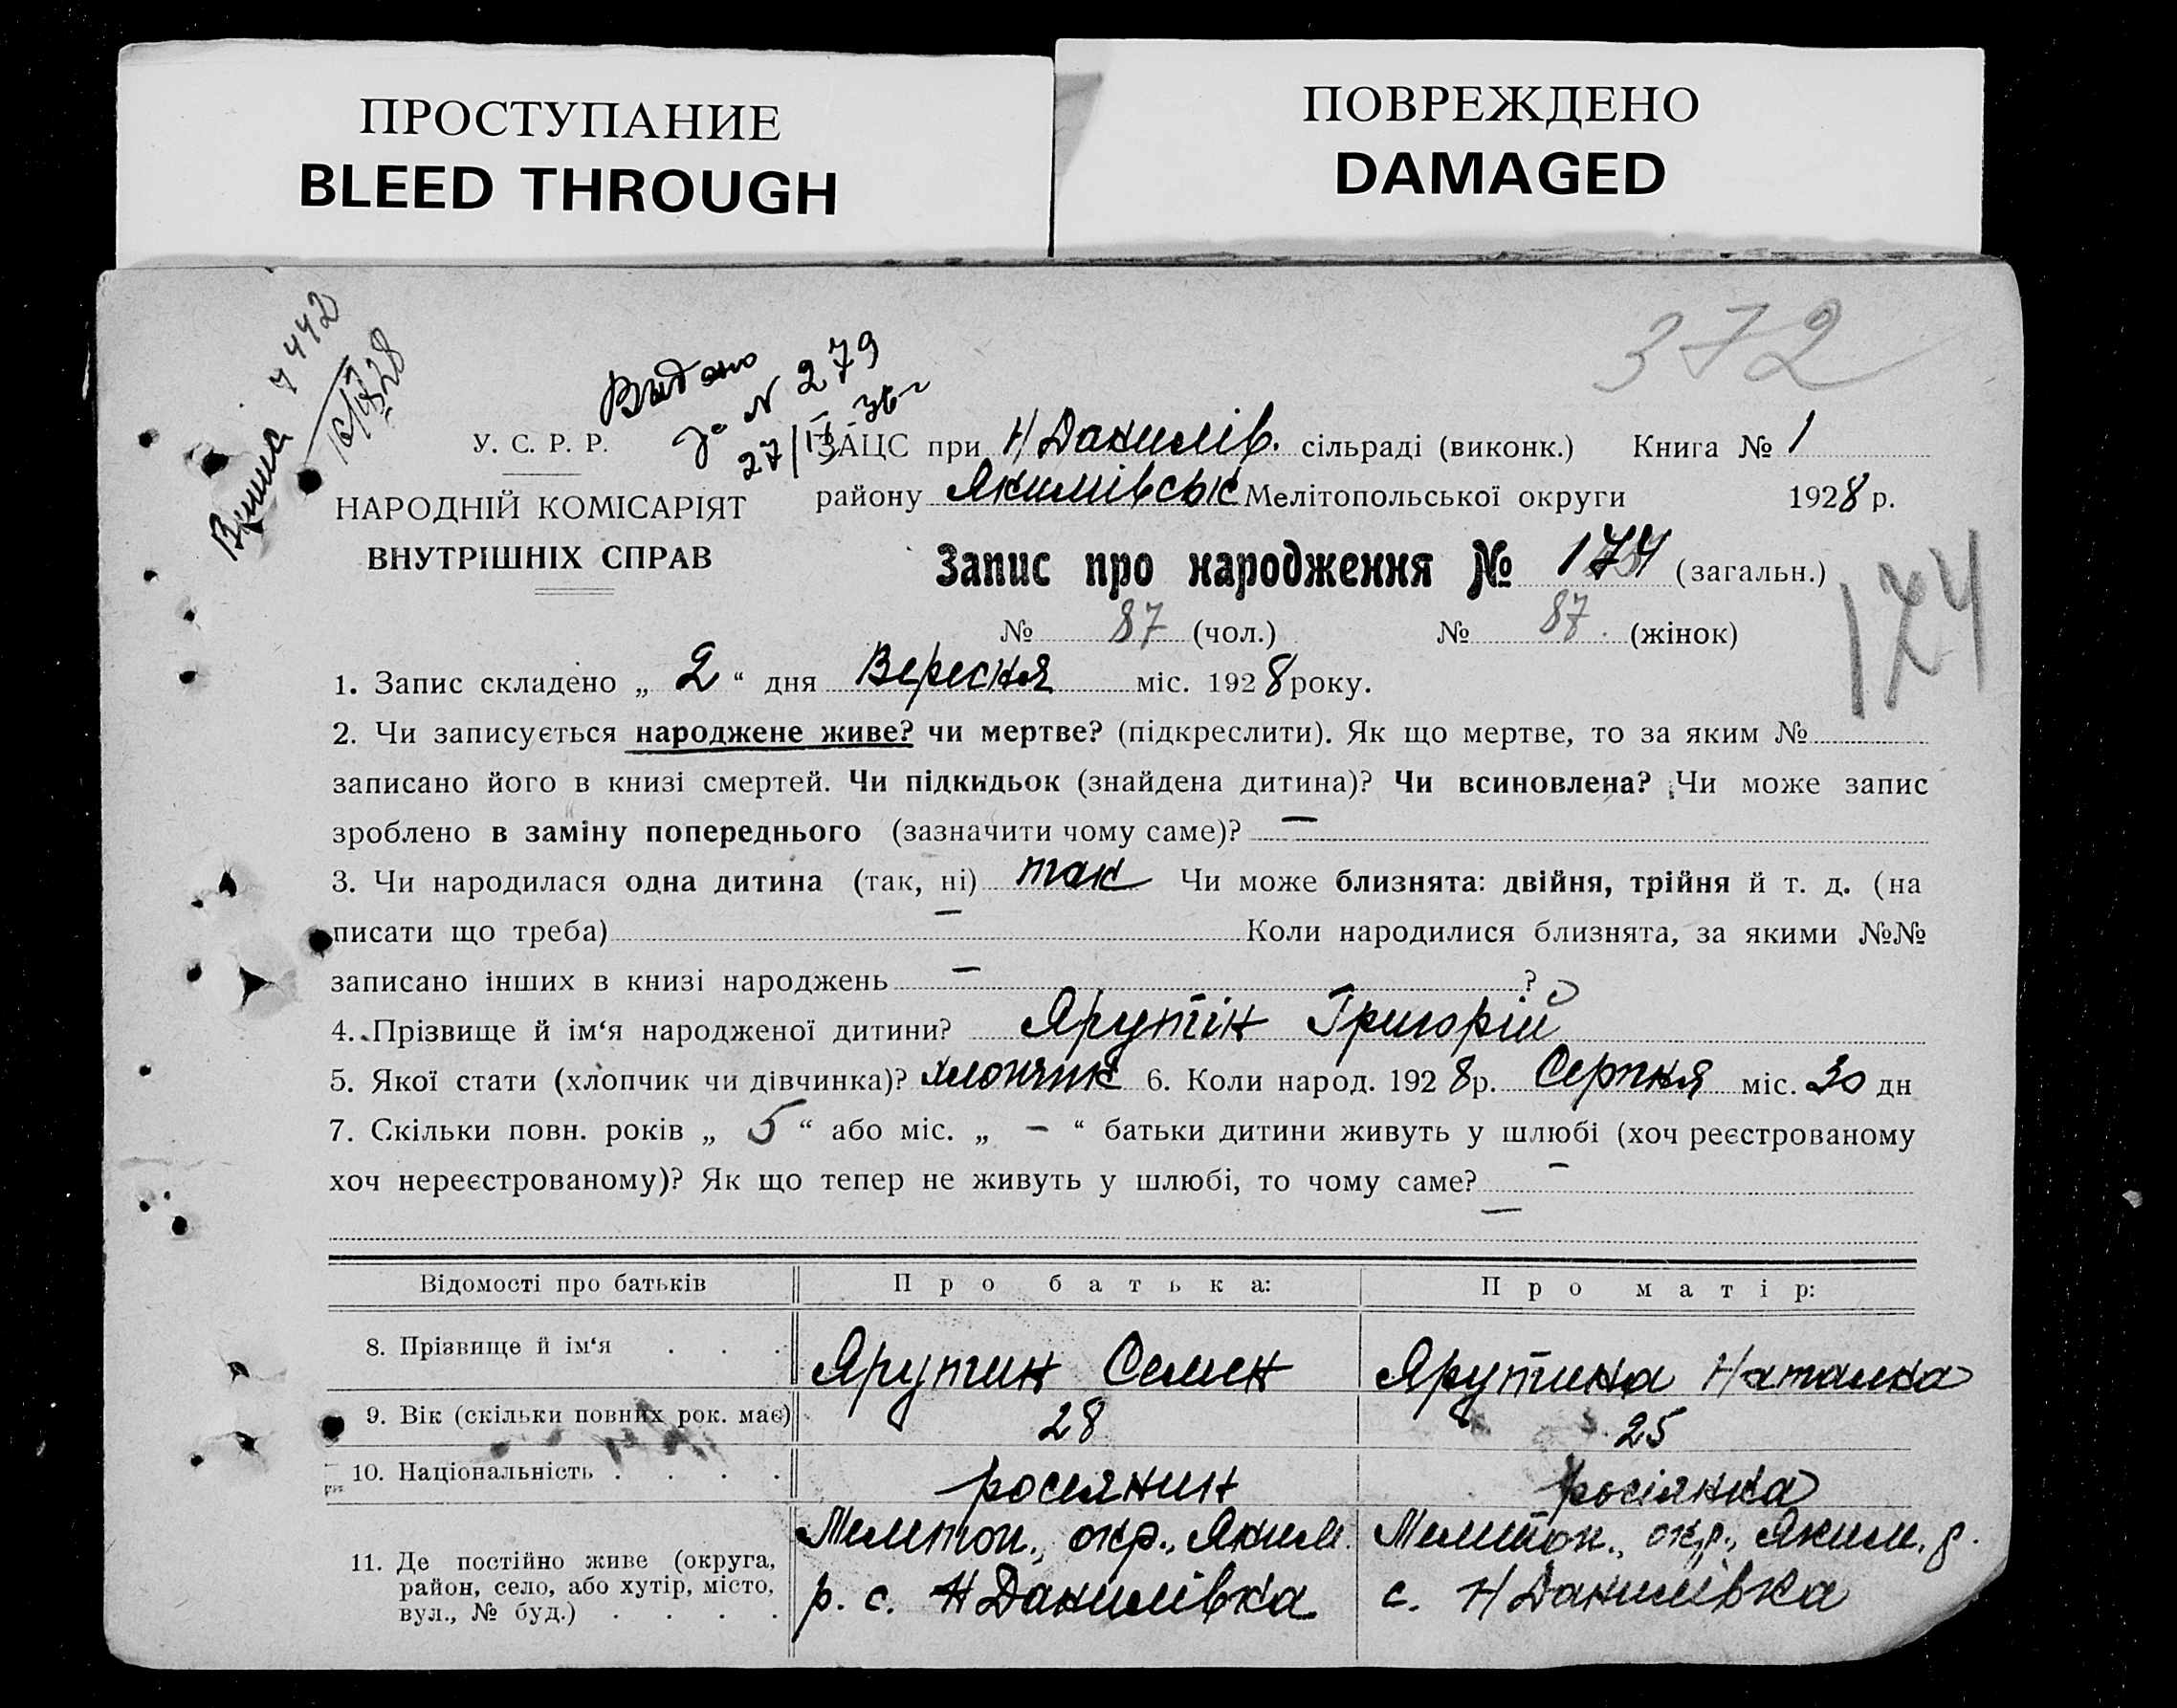 ПРОСТУПАНИЕ
BLEED THROUGH
ПОВРЕЖДЕНО
DAMAGED
372
Видано
за N 279
27/IX 36 г
У. С. Р. Р.
НАРОДНІЙ КОМІСАРІЯТ
ВНУТРІШНІХ СПРАВ
ЗАЦС при Н Данилів. сільраді (виконк.) Книга № 1
району Якимівськ Мелітопольської округи 1928 р.
Запис про народження № 174 (загальн.)
174
№ 87 (чол.) № 87 (жінок)
1. Запис складено „ 2 “ дня Вересня міс. 1928 року.
2. Чи записується народжене живе? чи мертве? (підкреслити). Як що мертве, то за яким №
записано його в книзі смертей. Чи підкидьок (знайдена дитина)? Чи всиновлена? Чи може запис
зроблено в заміну попереднього (зазначити чому саме)? —
3. Чи народилася одна дитина (так, ні) так Чи може близнята: двійня, трійня й т. д. (на
писати що треба) — Коли народилися близнята, за якими №№
записано інших в книзі народжень — ?
4. Прізвище й ім‘я народженої дитини? Ярутін Григорій
5. Якої стати (хлопчик чи дівчинка)? хлопчик 6. Коли народ. 1928 р. Серпня міс. 30 дн
7. Скільки повн. років „ 5 “ або міс. „ — “ батьки дитини живуть у шлюбі (хоч реєстрованому
хоч нереєстрованому)? Як що тепер не живуть у шлюбі, то чому саме? —
—
Відомості про батьків Про батька: Про матір:
8. Прізвище й ім‘я . . . Ярутин Семен Ярутина Наталка
9. Вік (скільки повних рок. має) 28 25
10. Національність . . . . росиянин росіянка
11. Де постійно живе (округа,
район, село, або хутір, місто,
вул., № буд.) . . . .
Мелитоп., окр., Яким.
р. с. Н Данилівка
Мелитоп., окр., Яким. р.
с. Н Данилівка